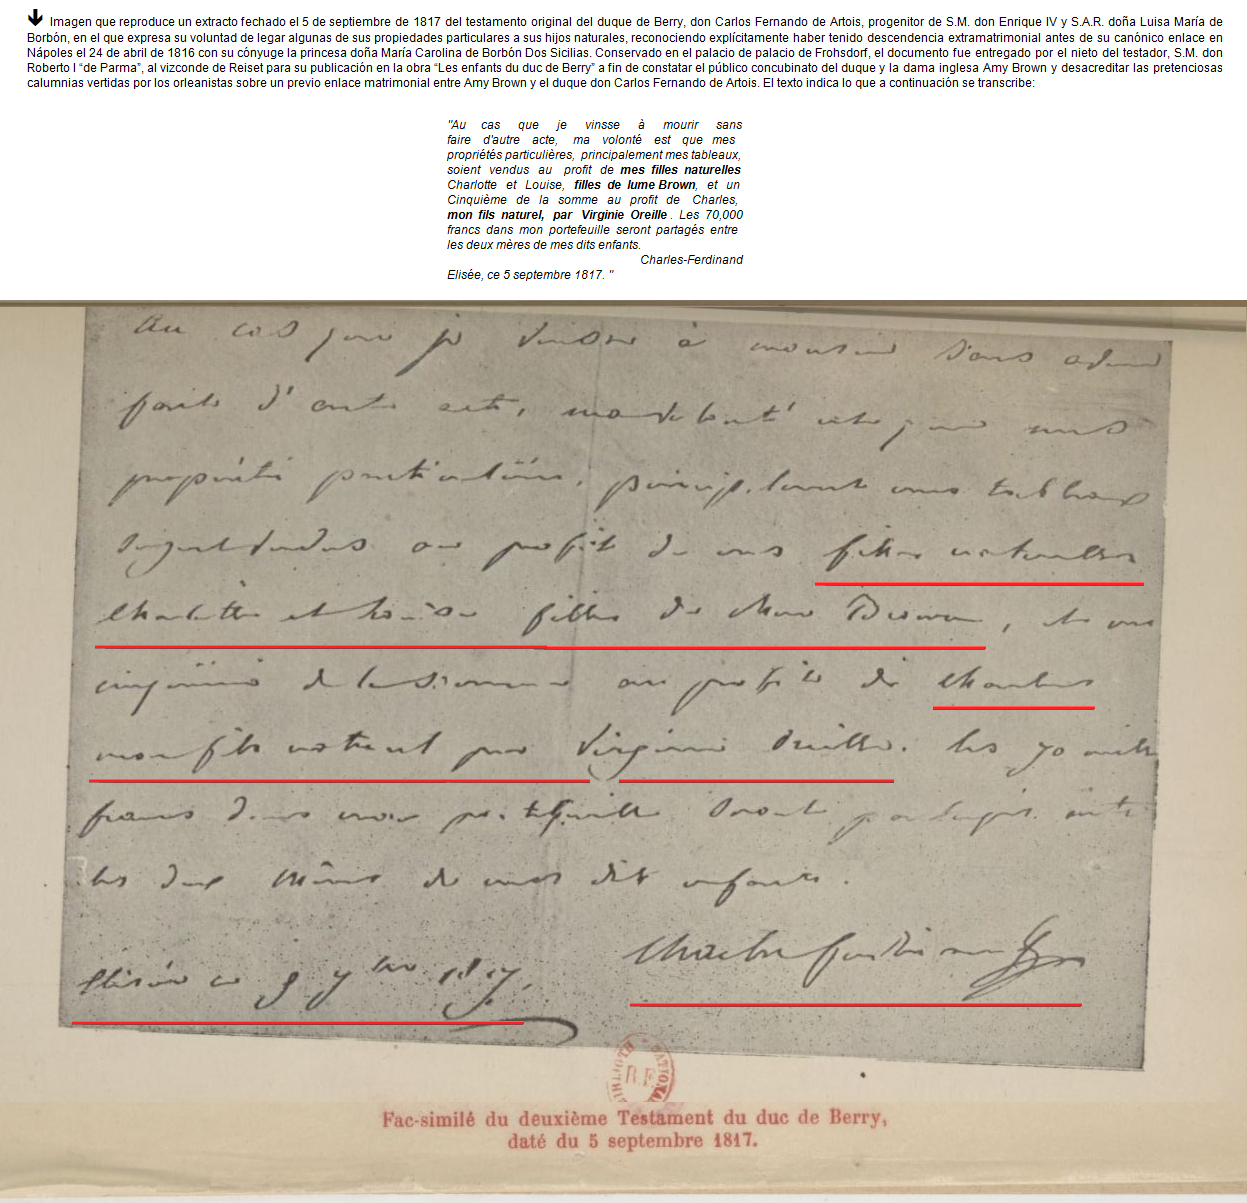 Imagen que reproduce un extracto fechado el 5 de septiembre de 1817 del testamento original del duque de Berry, don Carlos Fernando de Artois, progenitor de S.M. don Enrique IV y S.A.R. doña Luisa María de
Borbón, en el que expresa su voluntad de legar algunas de sus propiedades particulares a sus hijos naturales, reconociendo explícitamente haber tenido descendencia extramatrimonial antes de su canónico enlace en
Nápoles el 24 de abril de 1816 con su cónyuge la princesa doña María Carolina de Borbón Dos Sicilias. Conservado en el palacio de palacio de Frohsdorf, el documento fue entregado por el nieto del testador, S.M. don
Roberto I “de Parma”, al vizconde de Reiset para su publicación en la obra “Les enfants du duc de Berry” a fin de constatar el público concubinato del duque y la dama inglesa Amy Brown y desacreditar las pretenciosas
calumnias vertidas por los orleanistas sobre un previo enlace matrimonial entre Amy Brown y el duque don Carlos Fernando de Artois. El texto indica lo que a continuación se transcribe:
"Au cas que je vinsse à mourir sans
faire d'autre acte, ma volonté est que mes
propriétés particulières, principalement mes tableaux,
soient vendus au profit de mes filles naturelles
Charlotte et Louise, filles de lume Brown, et un
Cinquième de la somme au profit de Charles,
mon fils naturel, par Virginie Oreille. Les 70,000
francs dans mon portefeuille seront partagés entre
les deux mères de mes dits enfants.
Charles-Ferdinand
Elisée, ce 5 septembre 1817. "
Au cas que je vinsse à mourir sans
faire d'autre acte, ma volonté est que mes
propriétés particulières, principalement mes tableaux
soient vendus au profit de mes filles naturelles
Charlotte et Louise filles de Mme Brown, et un
cinquième de la somme au profit de Charles
mon fils naturel par Virginie Oreille. les 70 mille
francs dans mon portefeuille seront partagés entre
les deux mères de mes dits enfants.
Charles ferdinand
Elisée ce 5 7bre 1817.
BIBLIOTH NATIONAL
R.F.
Fac-similé du deuxième Testament du duc de Berry,
daté du 5 septembre 1817.